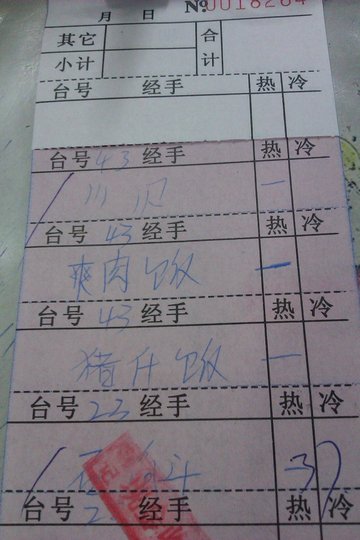 月 日 № 0018264
其它 合计
小计
台号 经手 热 冷
台号 43 经手 热 冷
川贝 一
台号 43 经手 热 冷
爽肉饭 一
台号 43 经手 热 冷
猪什饭 一
台号 23 经手 热 冷
台号 经手 热 冷